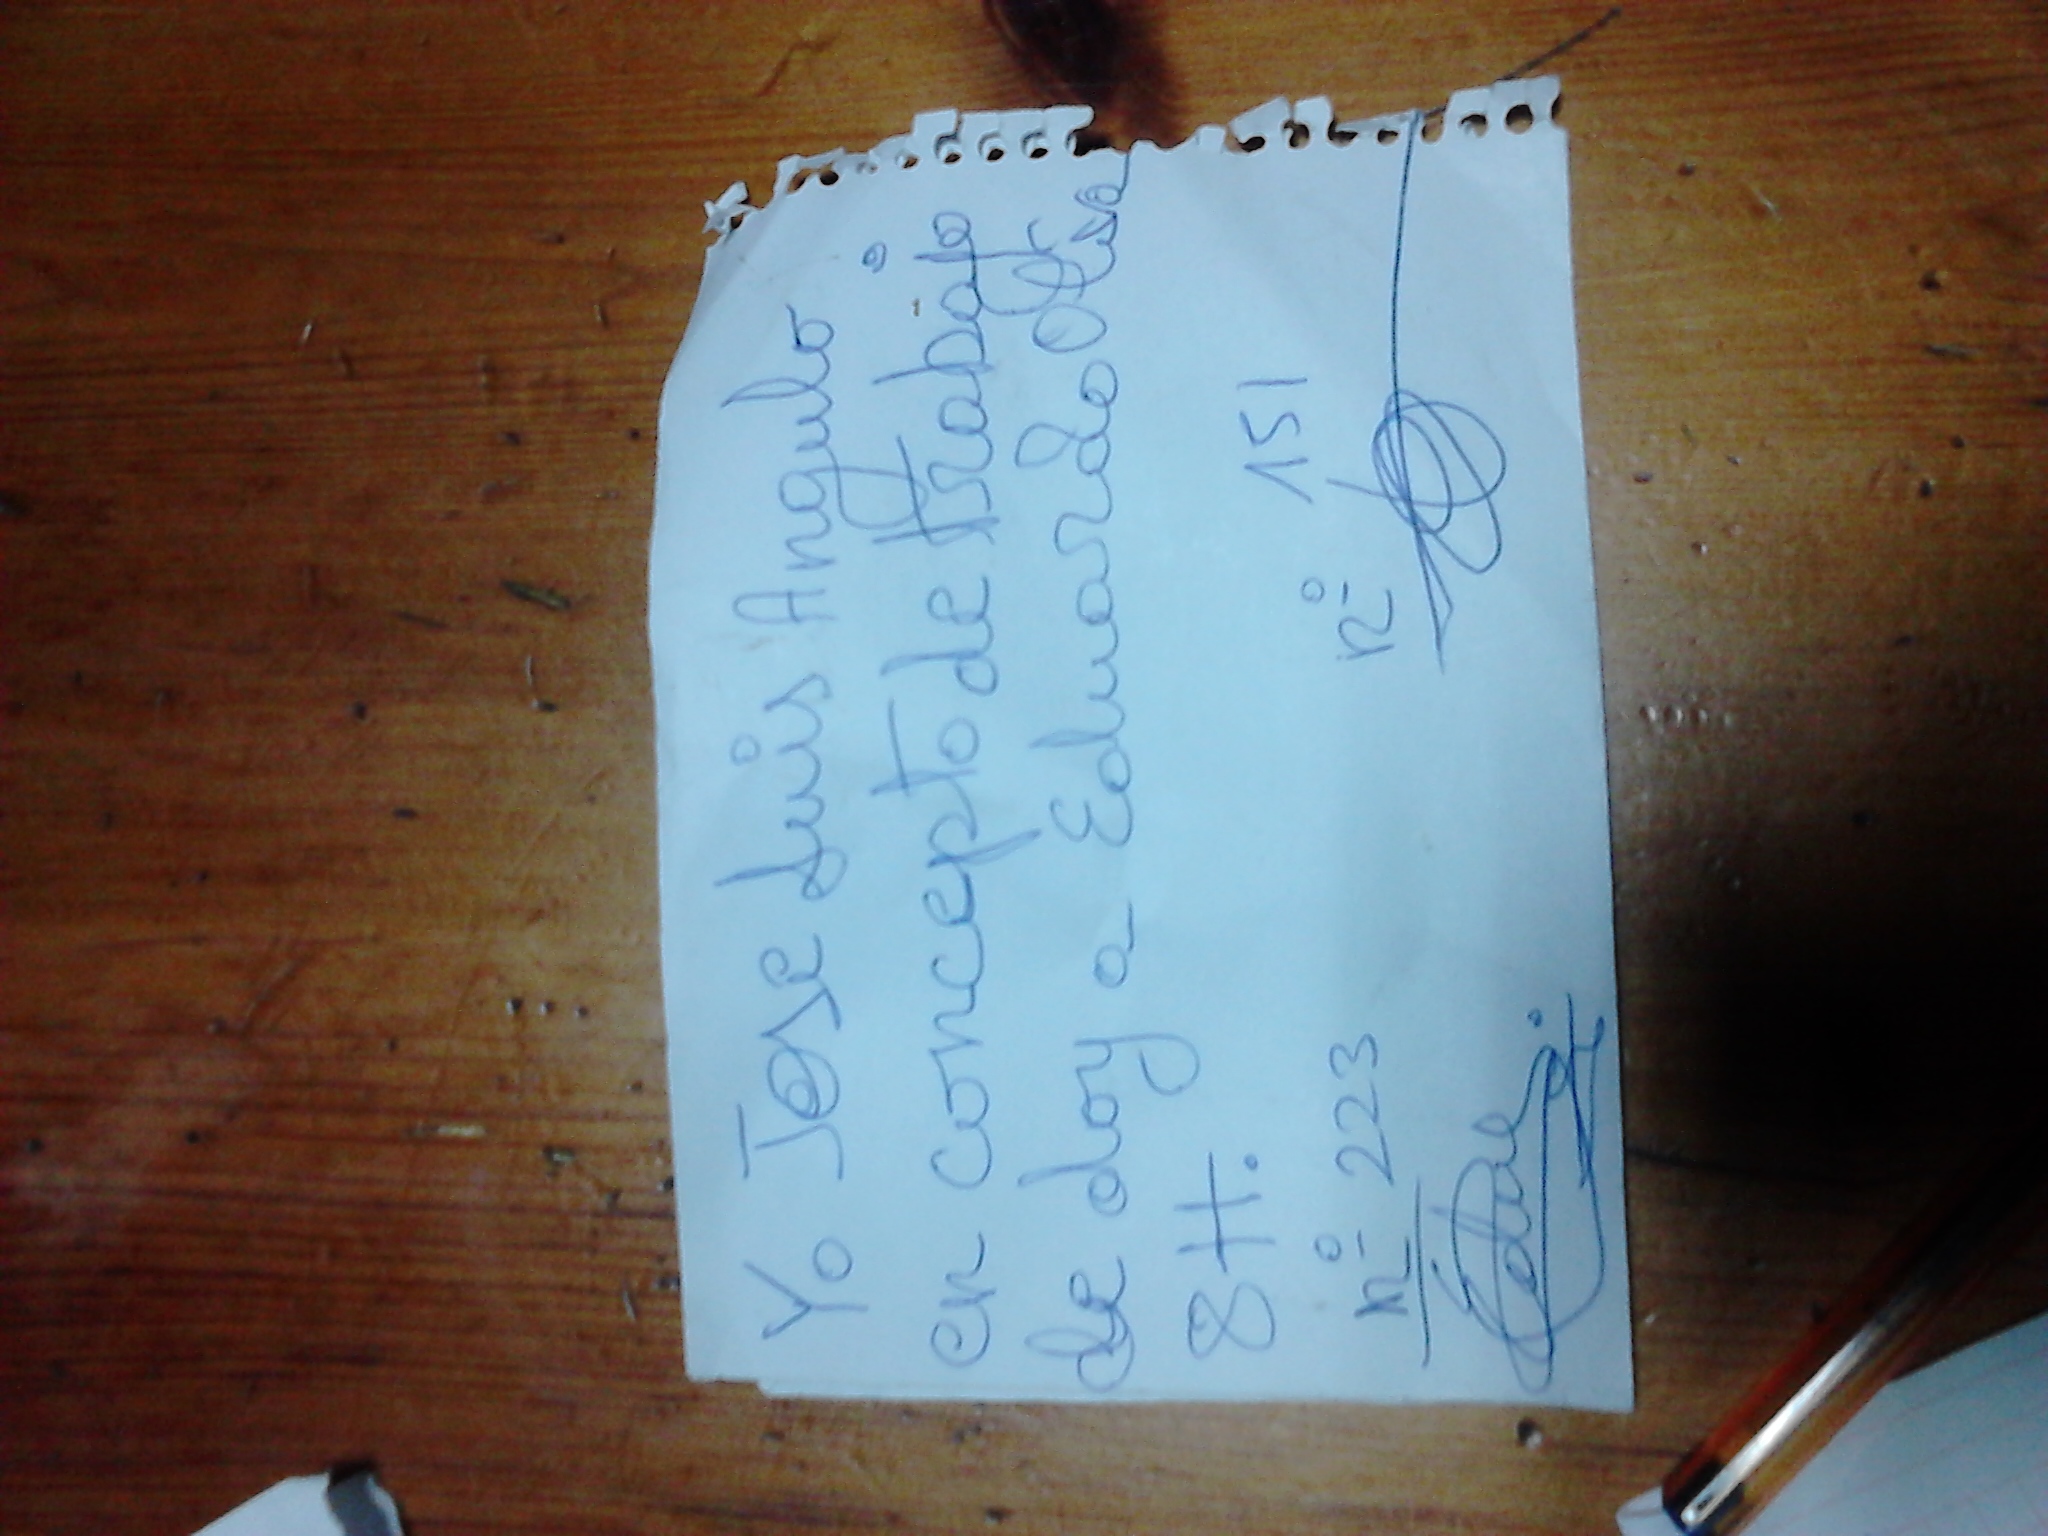 Yo Jose Luis Angulo
en concepto de trabajo
le doy a Eduardo Oliva
8 H.
nº 223
nº 151
Edu